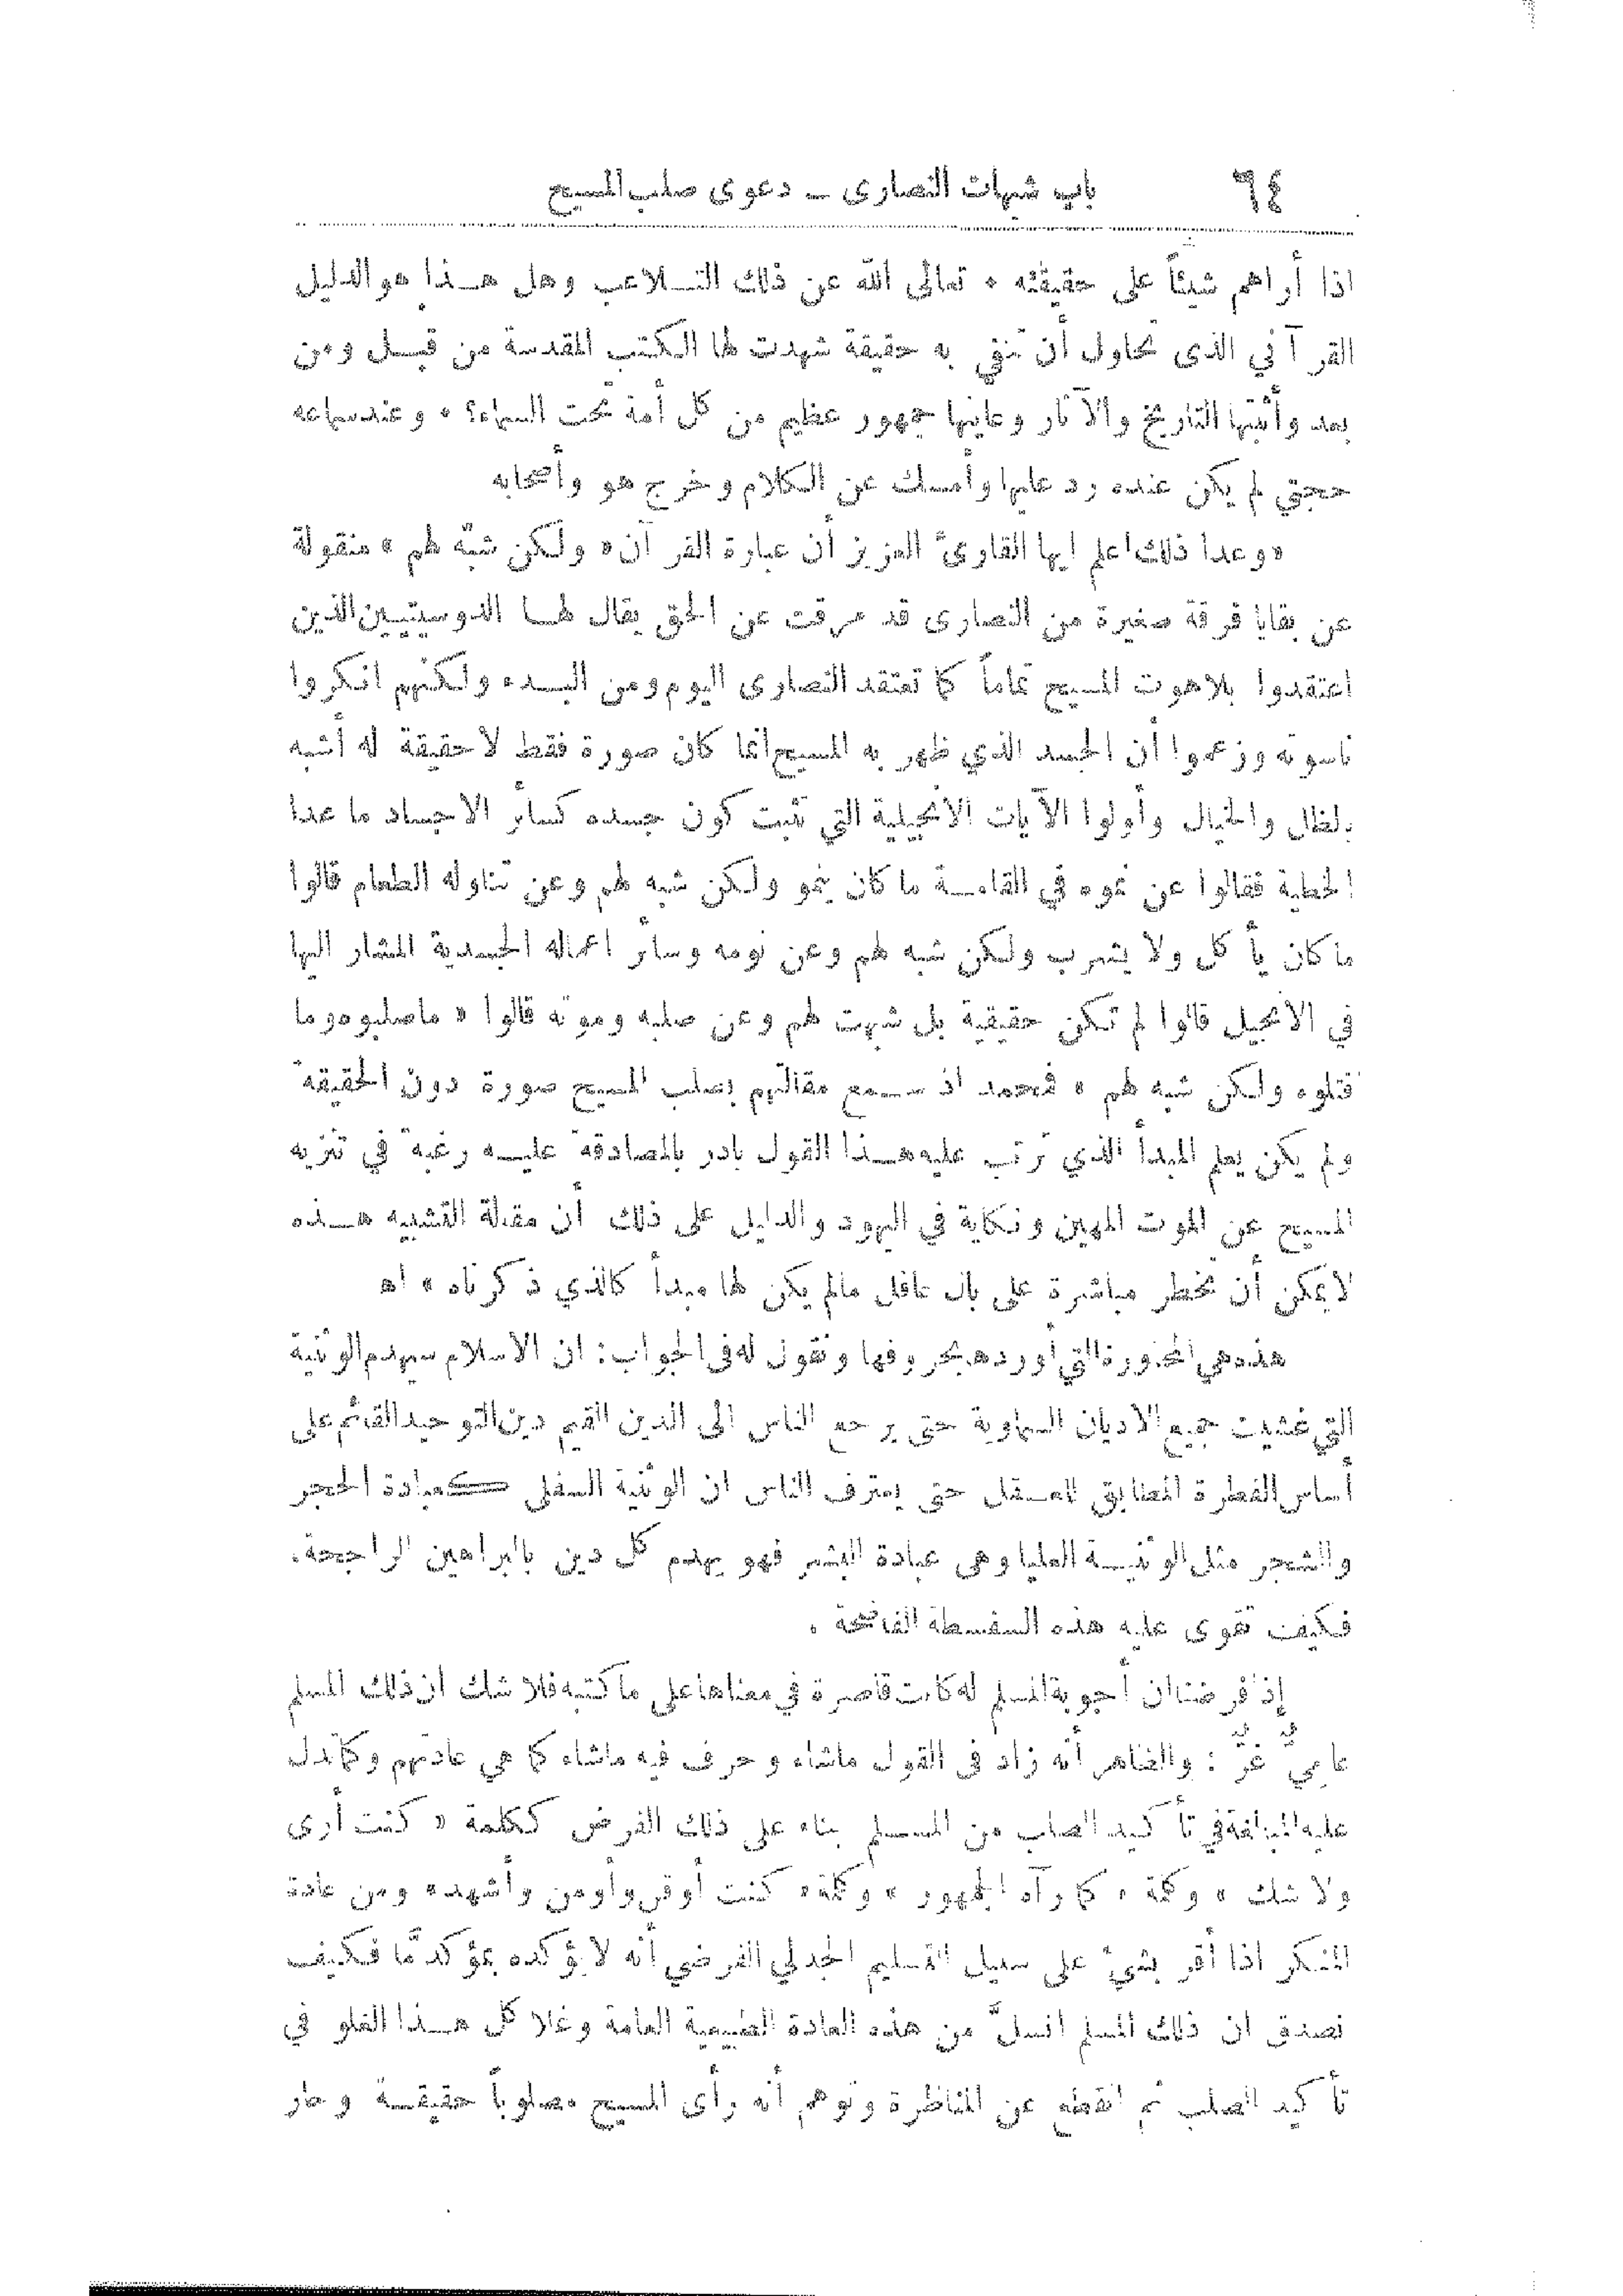 ٦٤ باب شبهات النصارى ــ دعوى صلب المسيح
اذا أراهم شيئاً على حقيقته . تعالى الله عن ذلك التلاعب وهل هذا هو الدليل
القرآني الذى تحاول أن تنفي به حقيقة شهدت لها الكتب المقدسة من قبل ومن
بعد وأثبتها التاريخ والآثار وعاينها جمهور عظيم من كل أمة تحت السماء؟ . وعند سماعه
حجتي لم يكن عنده رد عليها وأمسك عن الكلام وخرج هو وأصحابه
«وعدا ذلك اعلم ايها القارئ العزيز أن عبارة القرآن « ولكن شبّه لهم » منقولة
عن بقايا فرقة صغيرة من النصارى قد مرقت عن الحق يقال لهـا الدوسيتيين الذين
اعتقدوا بلاهوت المسيح تماماً كما تعتقد النصارى اليوم ومن البدء ولكنهم انكروا
ناسوته وزعموا أن الجسد الذي ظهر به المسيح انما كان صورة فقط لا حقيقة له أشبه
بالظل والخيال وأولوا الآيات الانجيلية التي تثبت كون جسده كسائر الاجساد ما عدا
الخطية فقالوا عن نموه في القامة ما كان ينمو ولكن شبه لهم وعن تناوله الطعام قالوا
ما كان يأكل ولا يشرب ولكن شبه لهم وعن نومه وسائر اعماله الجسدية المشار اليها
في الانجيل قالوا لم تكن حقيقية بل شبهت لهم وعن صلبه وموته قالوا « ماصلبوه وما
قتلوه ولكن شبه لهم » فمحمد اذ سمع مقالتهم بصلب المسيح صورة دون الحقيقة
ولم يكن يعلم المبدأ الذي ترتب عليه هذا القول بادر بالمصادقة عليه رغبة في تنزيه
المسيح عن الموت المهين ونكاية في اليهود والدليل على ذلك أن مقالة التشبيه هذه
لا يمكن أن تخطر مباشرة على بال عاقل مالم يكن لها مبدأ كالذي ذكرناه » اه
هذه هي المحاورة التي أوردها بحروفها ونقول له في الجواب: ان الاسلام سيهدم الوثنية
التي غشيت جميع الاديان السماوية حتى يرجع الناس الى الدين القيم دين التوحيد القائم على
أساس الفطرة المطابق للعقل حتى يعترف الناس ان الوثنية السفلى كعبادة الحجر
والشجر مثل الوثنية العليا وهي عبادة البشر فهو يهدم كل دين بالبراهين الراجحة.
فكيف تقوى عليه هذه السفسطة الفاضحة .
إذا فرضنا ان أجوبة المسلم له كانت قاصرة في معناها على ما كتبه فلا شك ان ذلك المسلم
عامي غرّ : والظاهر أنه زاد فى القول ماشاء وحرف فيه ماشاء كما هي عادتهم وكما تدل
عليه المبالغة في تأكيد الصلب من المسلم بناء على ذلك الفرض ككلمة « كنت أرى
ولا شك » وكلمة « كما رآه الجمهور » وكلمة « كنت أوقن وأومن وأشهد » ومن عادة
المنكر اذا أقر بشيء على سبيل التسليم الجدلي الفرضي أنه لا يؤكده بمؤكد مّا فكيف
نصدق ان ذلك المسلم انسلّ من هذه العادة الطبيعية العامة وغلا كل هذا الغلو في
تأكيد الصلب ثم انقطع عن المناظرة وتوهم أنه رأى المسيح مصلوباً حقيقة وحار